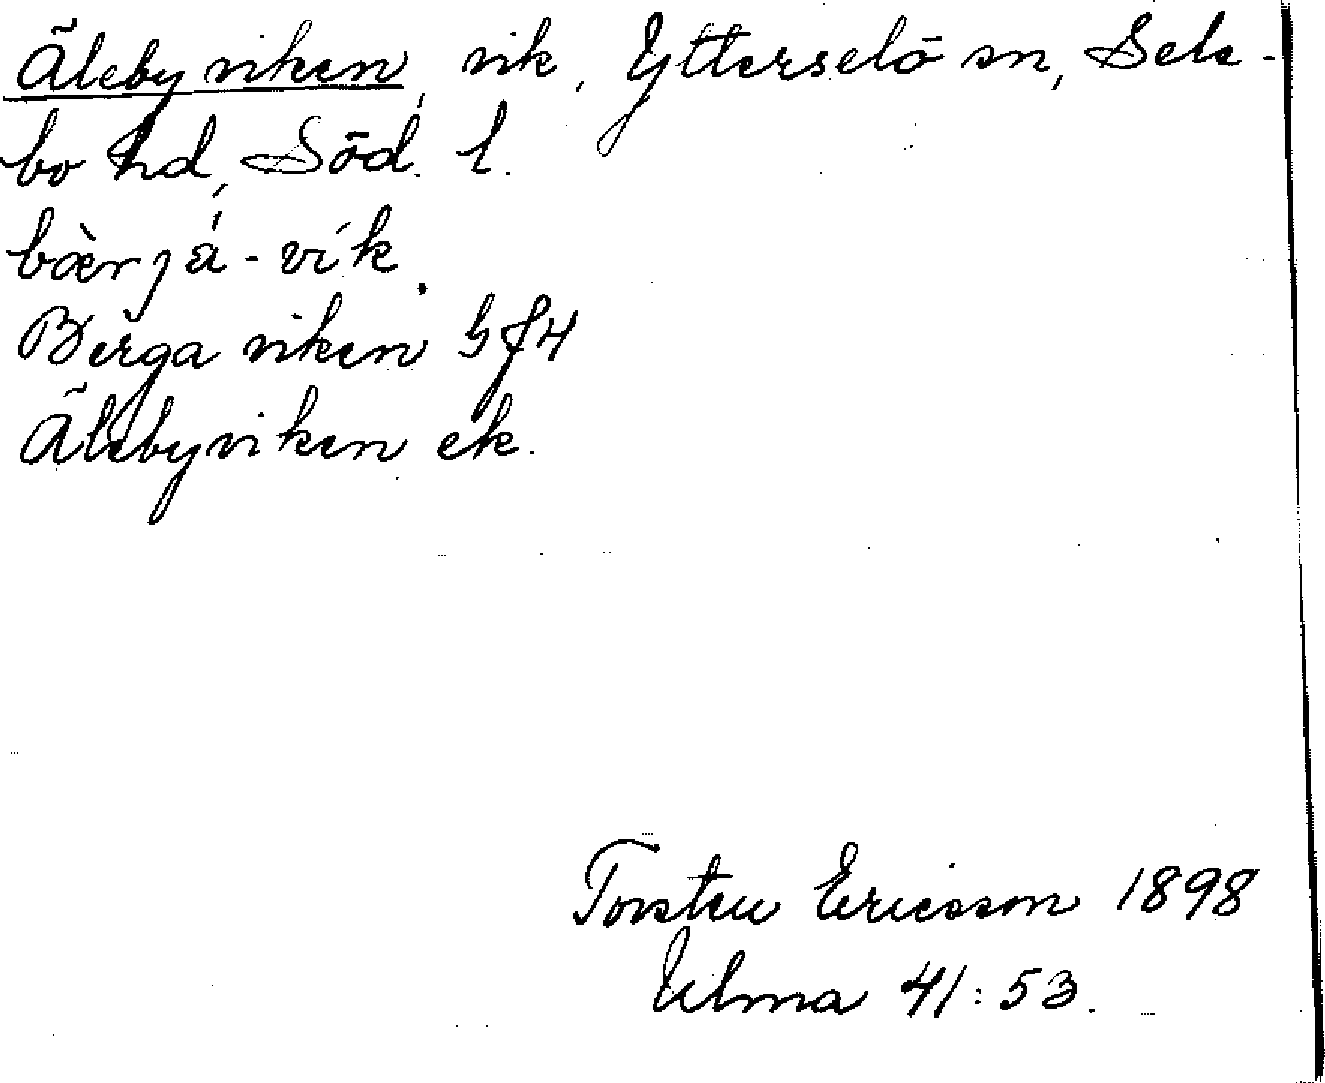 Älebyviken, vik, Ytterselö sn, Sele-
bo hd, Söd. l.
bæ̀rjá-vík.
Berga viken
Älebyviken ek.
Torsten Ericsson 1898
Ulma 41:53.